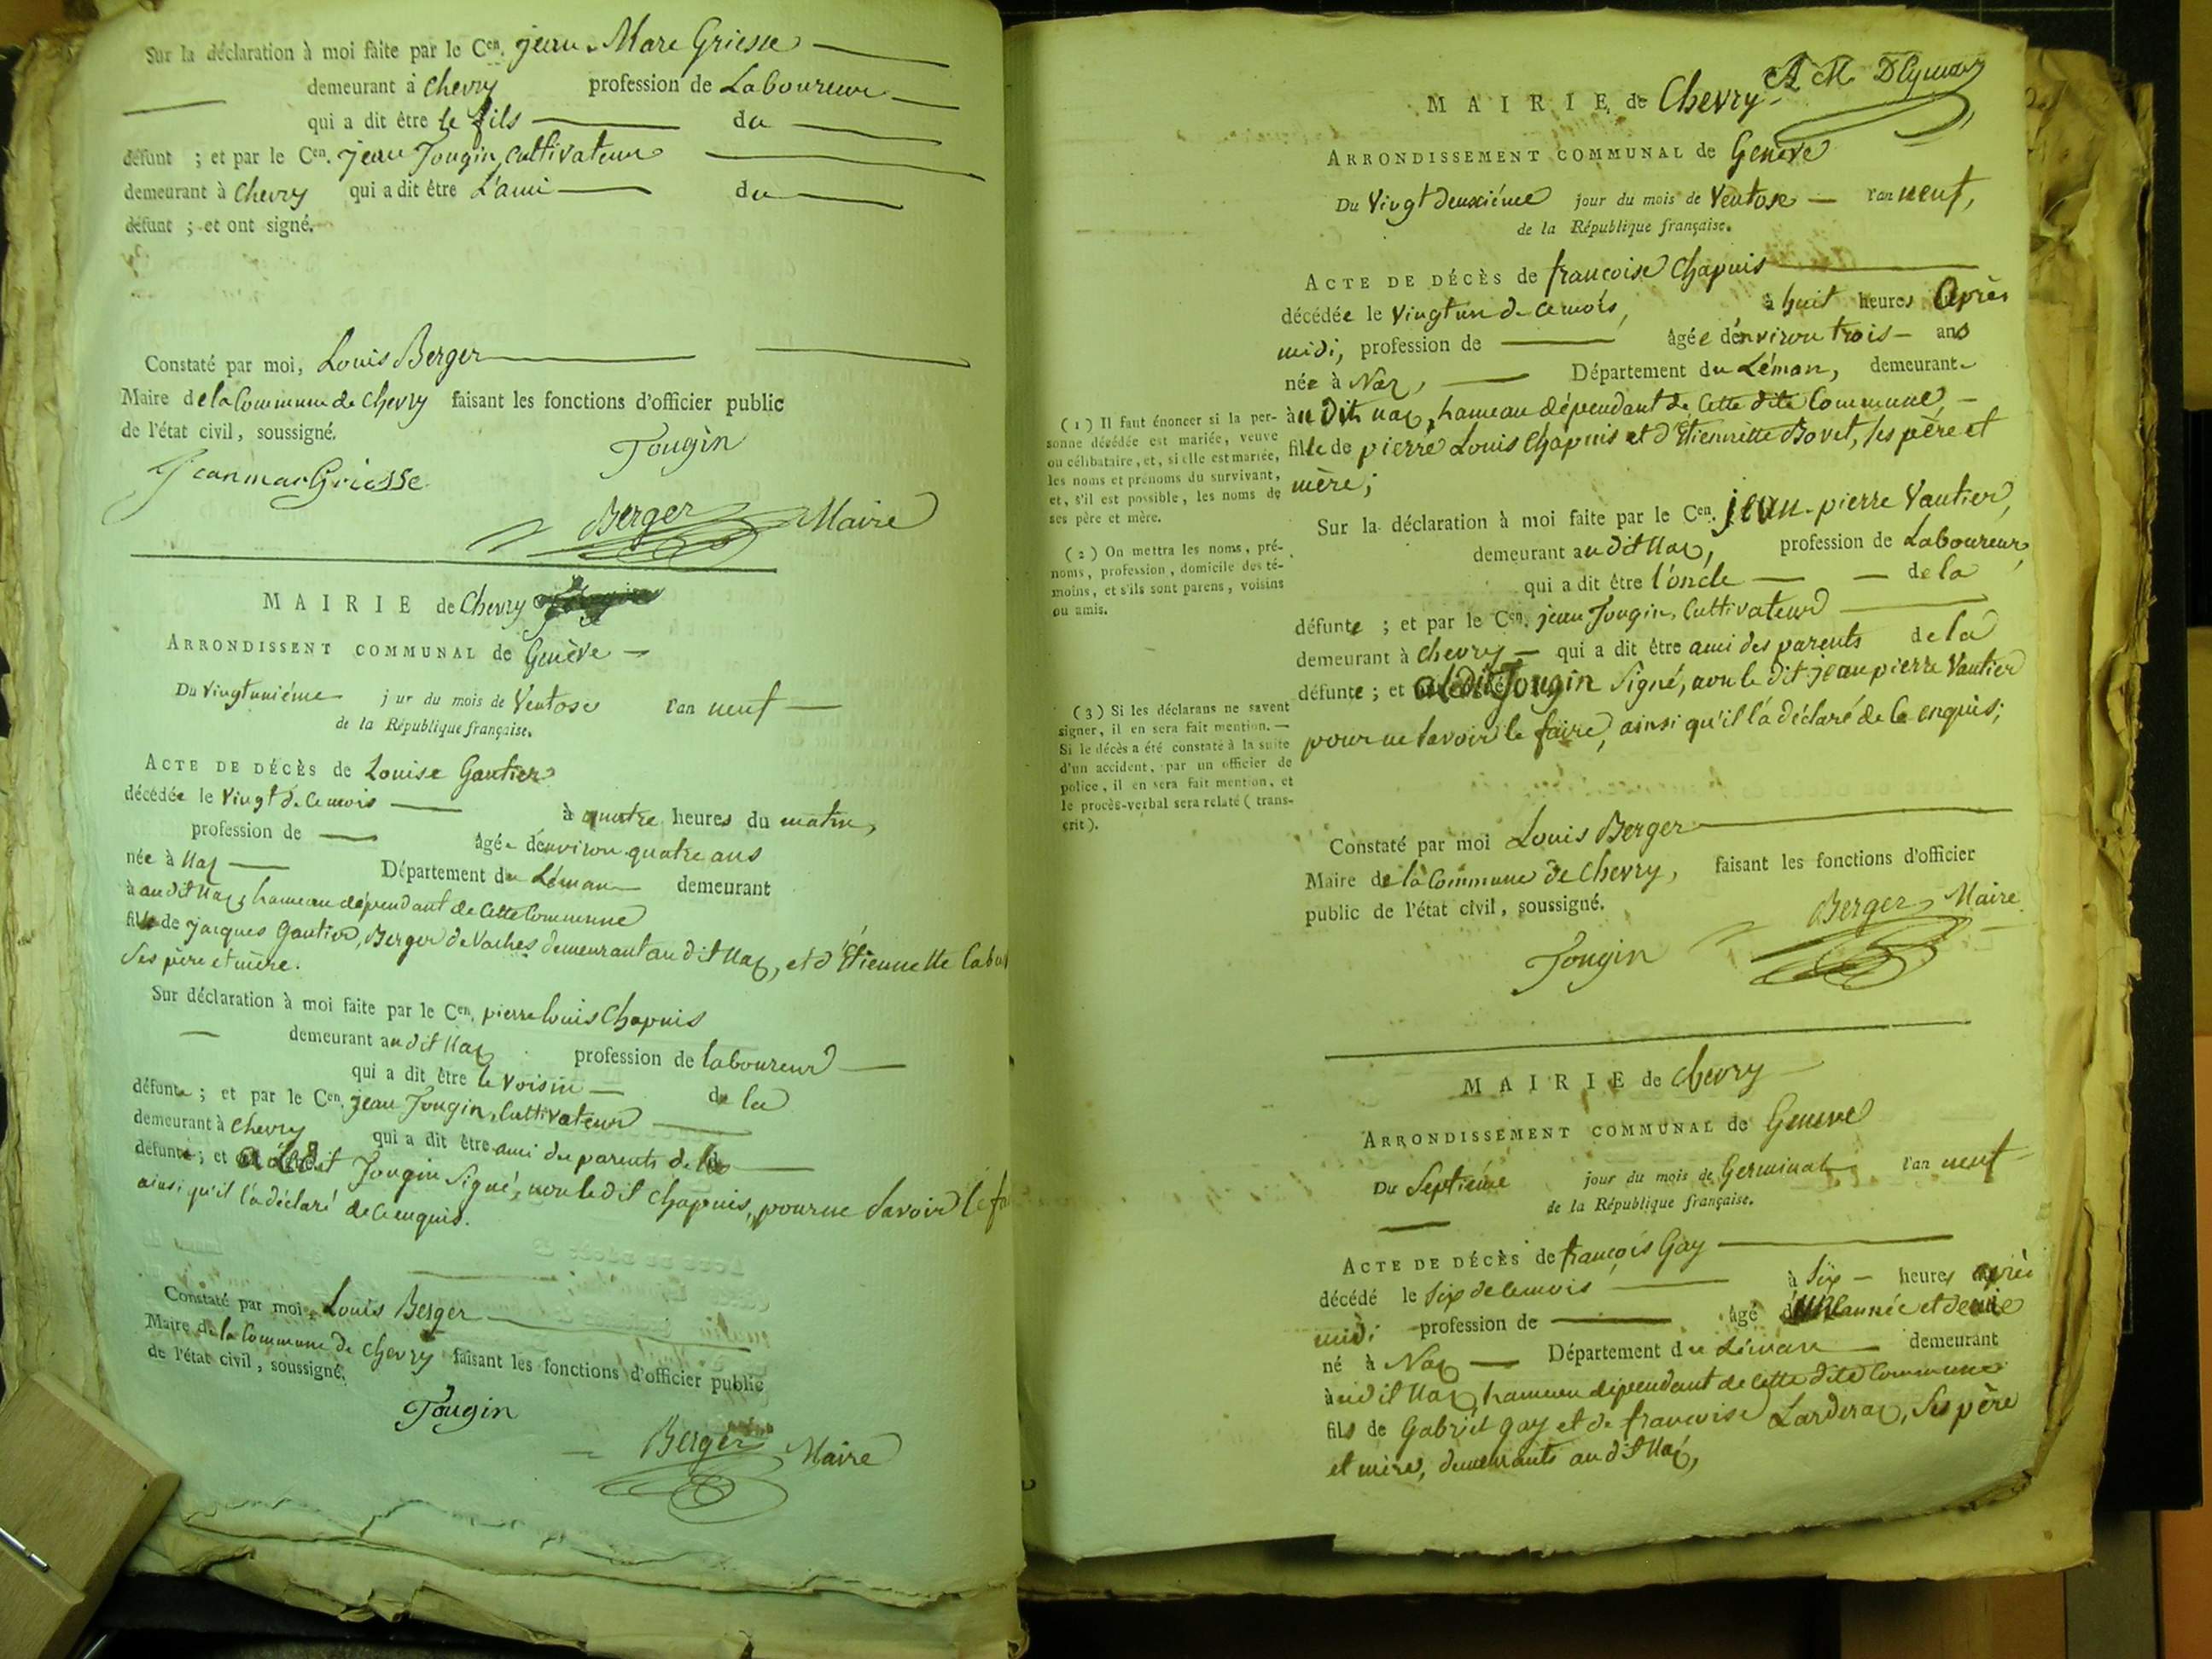 Sur la déclaration à moi faite par le Cen. jean-Marc Griesse
demeurant à Chevry profession de Laboureur
qui a dit être le fils du
défunt ; et par le Cen. jean Tougin, Cultivateur
demeurant à Chevry qui a dit être L'ami du
défunt ; et ont signé.
Constaté par moi, Louis Berger
Maire de la Commune de Chevry faisant les fonctions d'officier public
de l'état civil, soussigné.
Tougin
Jean marc Griesse
Berger Maire
MAIRIE de Chevry
ARRONDISSENT COMMUNAL de Genève
Du Vingtunième jur du mois de Ventose l'an neuf
de la République française.
ACTE DE DÉCÈS de Louise Gautier
décédée le Vingt de ce mois à quatre heures du matin,
profession de âgée d'environ quatre ans
née à Naz Département du Léman demeurant
à au dit Naz, hameau dépendant de Cette Commune
fille de jacques Gautier, Berger de Vaches demeurant au dit Naz, et d'Étiennette
Ses père et mère.
Sur déclaration à moi faite par le Cen. pierre louis Chapuis
demeurant au dit Naz profession de laboureur
qui a dit être le voisin de la
défunte ; et par le Cen. jean Tougin, Cultivateur
demeurant à Chevry qui a dit être ami des parents de la
défunte ; et a Ledit Tougin Signé, non le dit Chapuis, pour ne Savoir le
ainsi qu'il l'a déclaré de ce enquis.
Constaté par moi, Louis Berger
Maire de la Commune de Chevry faisant les fonctions d'officier public
de l'état civil, soussigné.
Tougin
Berger Maire
A M
MAIRIE de Chevry
ARRONDISSEMENT COMMUNAL de Genève
Du Vingt deuxième jour du mois de Ventose l'an neuf,
de la République française.
ACTE DE DÉCÈS de françoise Chapuis
décédée le Vingtun de ce mois, à huit heures Après
midi, profession de âgée d'environ trois ans
née à Naz, Département du Léman, demeurant
à au dit naz, hameau dépendant de Cette dite Commune
fille de pierre Louis Chapuis et d'Étiennette Bovet, ses père et
mère;
Sur la déclaration à moi faite par le Cen. jean-pierre Vautier,
demeurant au dit Naz, profession de Laboureur,
qui a dit être l'oncle de la
défunte ; et par le Cen. jean Tougin, Cultivateur
demeurant à Chevry qui a dit être ami des parents de la
défunte ; et a ledit Tougin Signé, non le dit jean pierre Vautier
pour ne savoir le faire, ainsi qu'il l'a déclaré de Ce enquis;
Constaté par moi Louis Berger
Maire de la Commune de Chevry, faisant les fonctions d'officier
public de l'état civil, soussigné.
Berger Maire
Tougin
(1) Il faut énoncer si la per-
sonne décédée est mariée, veuve
ou célibataire, et, si elle est mariée,
les noms et prénoms du survivant,
et, s'il est possible, les noms de
ses père et mère.
(2) On mettra les noms, pré-
noms, profession, domicile des té-
moins, et s'ils sont parens, voisins
ou amis.
(3) Si les déclarans ne savent
signer, il en sera fait mention. —
Si le décès a été constaté à la suite
d'un accident, par un officier de
police, il en sera fait mention, et
le procès-verbal sera relaté (trans-
crit).
MAIRIE de Chevry
ARRONDISSEMENT COMMUNAL de Geneve
Du Septiéme jour du mois de Germinal l'an neuf
de la République française.
ACTE DE DÉCÈS de françois Gay
décédé le Six de ce mois à Six heures après
midi profession de âgé d'une année et demie
né à Naz Département du Léman demeurant
à udit Naz, hameau dépendant de cette dite Commune
fils de Gabriel gay et de françoise Larderaz, Ses père
et mère, demeurants au dit Naz,